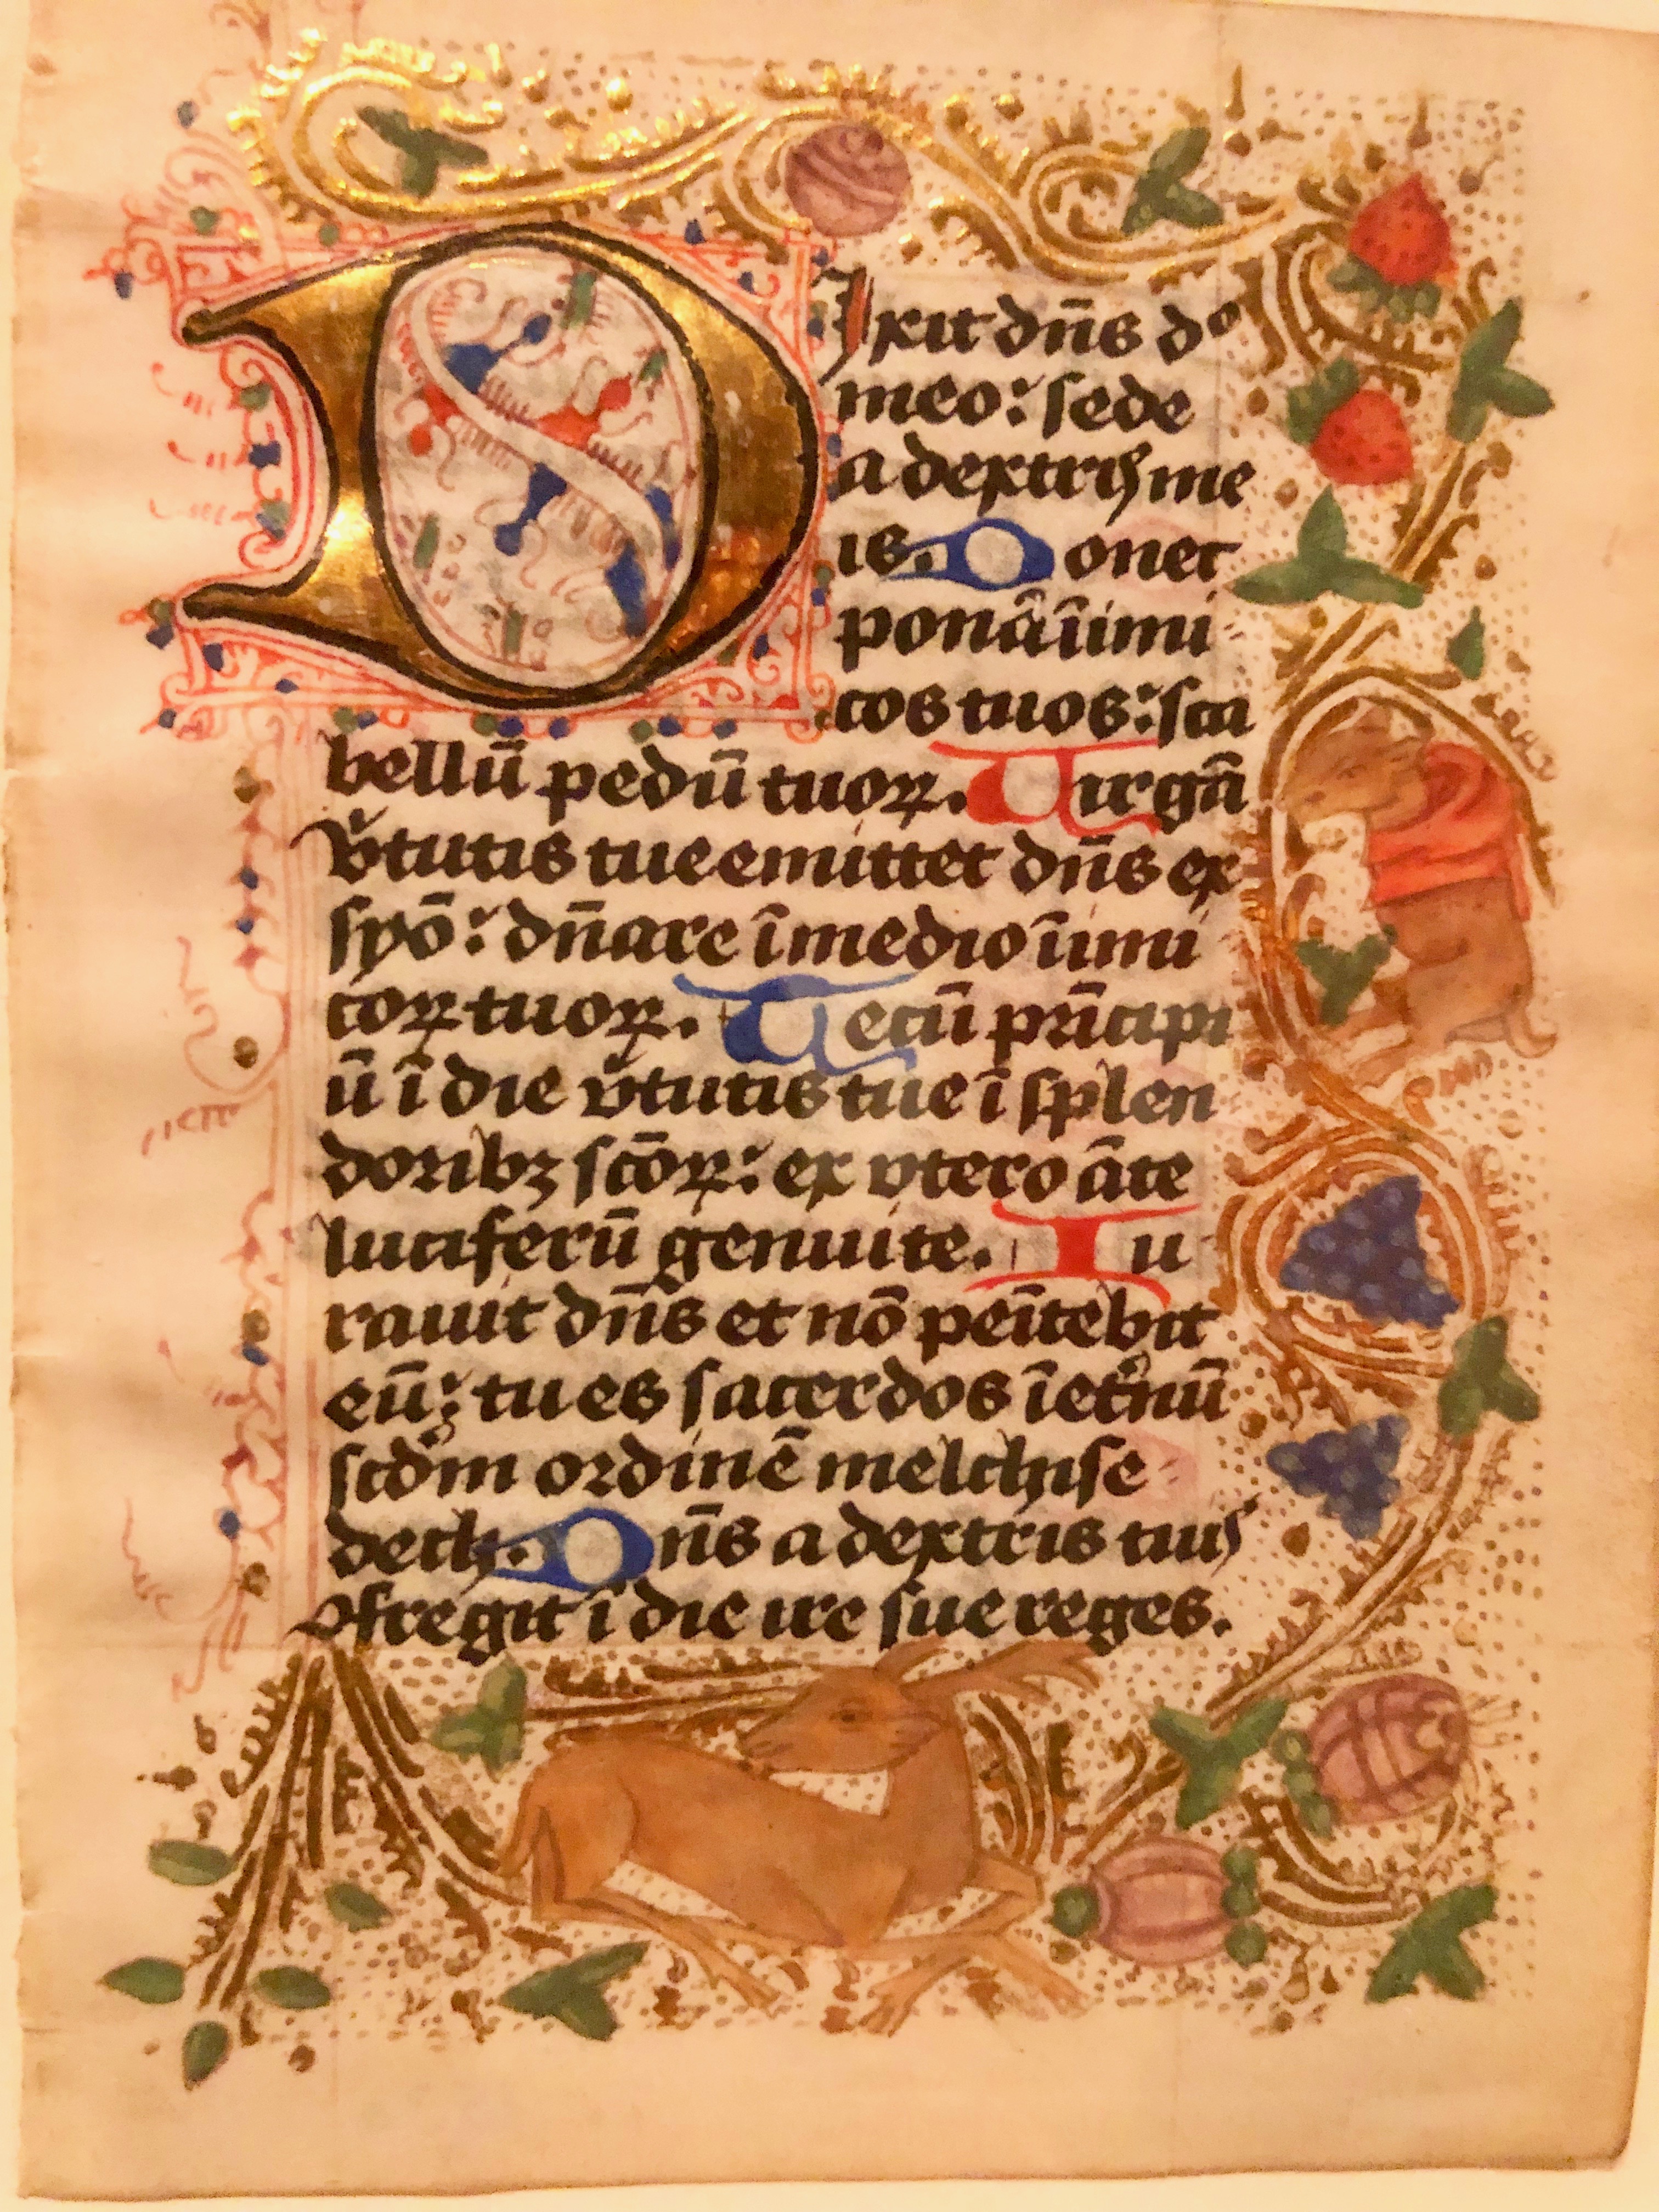 Dixit dn̄s do
meo: sede
a dextris me
is. Donec
ponā īimi
cos tuos: sca
bellū pedū tuoꝝ. Virgā
v̓tutis tue emittet dn̄s ex
syō: dn̄are ī medio īimi
coꝝ tuoꝝ. Tecū prīcipi
ū ī die v̓tutis tue ī splen
doribꝫ sc̄oꝝ: ex vtero āte
luciferū genuite. Iu
rauit dn̄s et nō peītebit
eū: tu es sacerdos ī et̓nū
scdm ordinē melchise
dech. Dn̄s a dextris tuis
ꝯfregit ī die ire sue reges.